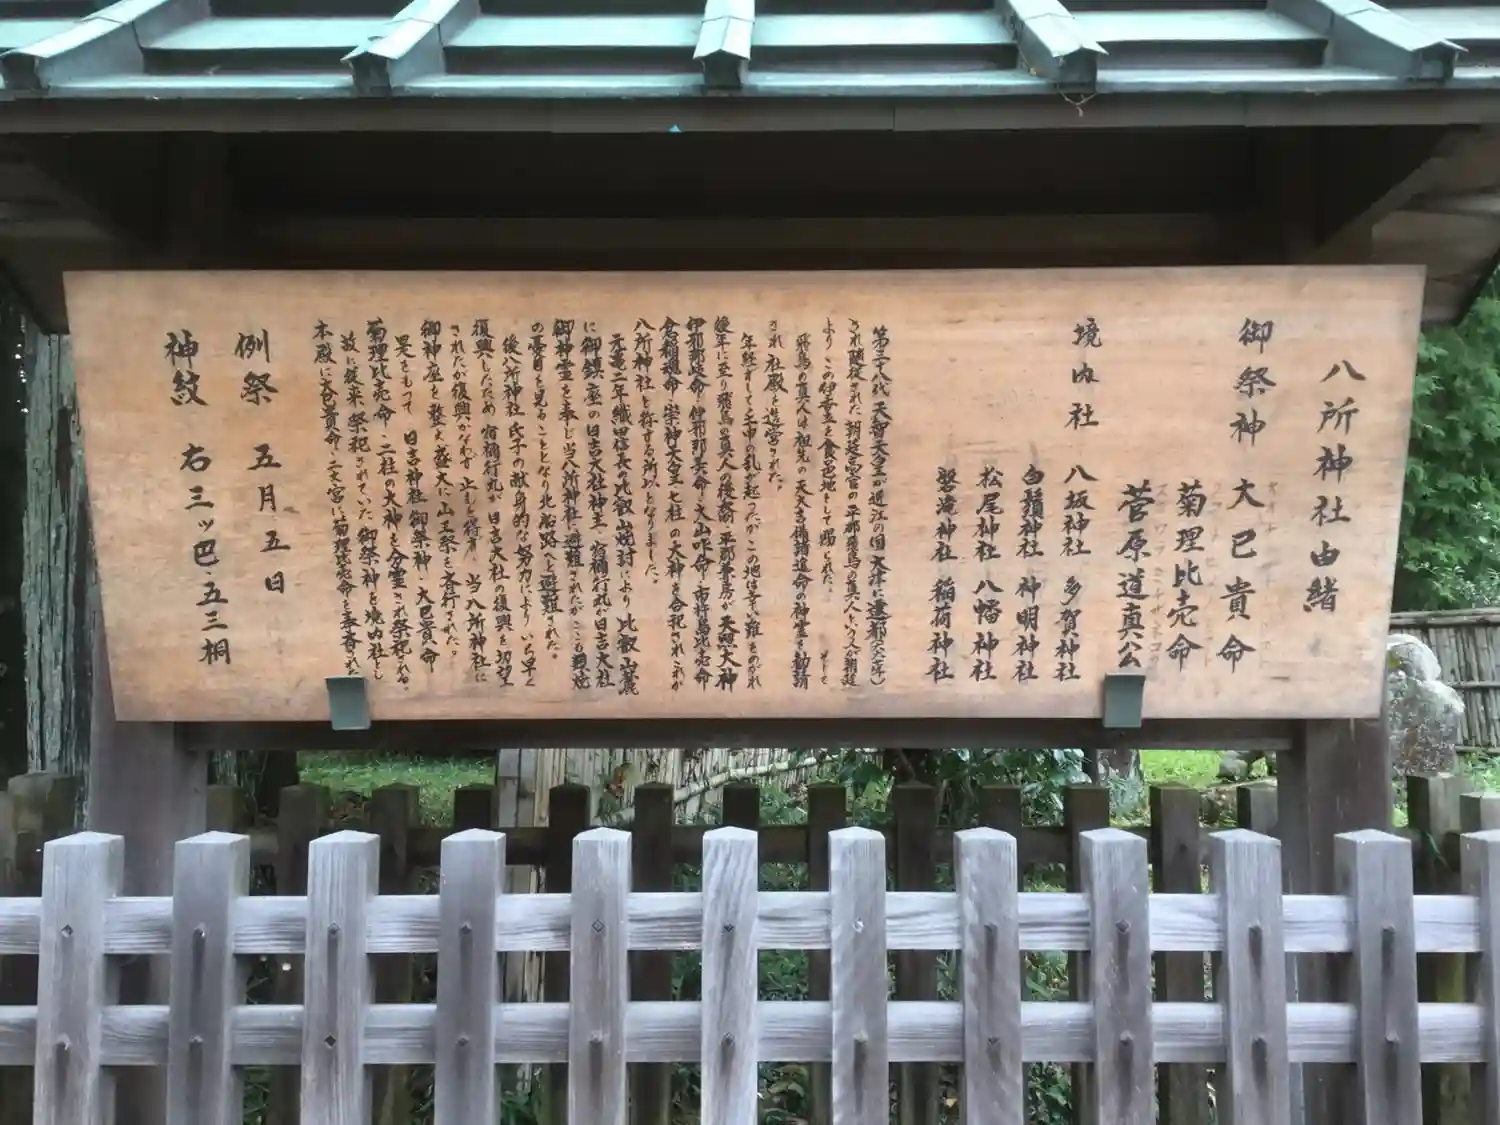 八所神社由緒
御祭神 大己貴命
菊理比売命
菅原道真公
境内社 八坂神社 多賀神社
白鬚神社 神明神社
松尾神社 八幡神社
磐滝神社 稲荷神社
第三十八代 天智天皇が近江の国大津に遷都
され随従された朝廷高官の平那飛鳥の真人という人が朝廷
よりこの伊香立を食邑地として賜られた。
飛鳥の真人は祖先の天太吉備諸道命の神霊を勧請
され 社殿を造営された。
年経ずして壬申の乱が起ったが この地は幸い難をのがれ
後年に至り飛鳥の真人の後裔 平那兼房が 天照大神
伊邪那岐命・伊邪那美命・大山咋命・市杵島比売命
倉稲魂命・崇神天皇 七柱の大神を合祀され これが
八所神社と称する所以となりました。
元亀二年織田信長の比叡山焼討により 比叡山麓
に御鎮座の日吉大社神主、祝部行丸が日吉大社
御神霊を奉じ当八所神社に避難されたがここも類焼
の憂目を見ることとなり北船路へと避難された。
後八所神社 氏子の献身的な努力により いち早く
復興したため 祝部行丸が 日吉大社の復興を切望
されたが復興かなわず 止むを得ず 当八所神社に
御神座を整え 盛大に山王祭を斎行された。
是をもって 日吉神社 御祭神・大己貴命
菊理比売命・二柱の大神を分霊され祭祀される。
故に従来 祭祀されていた 御祭神を境内社とし
本殿に大己貴命・二之宮に菊理比売命を奉斎された
例祭 五月五日
神紋 右三ッ巴・五三桐